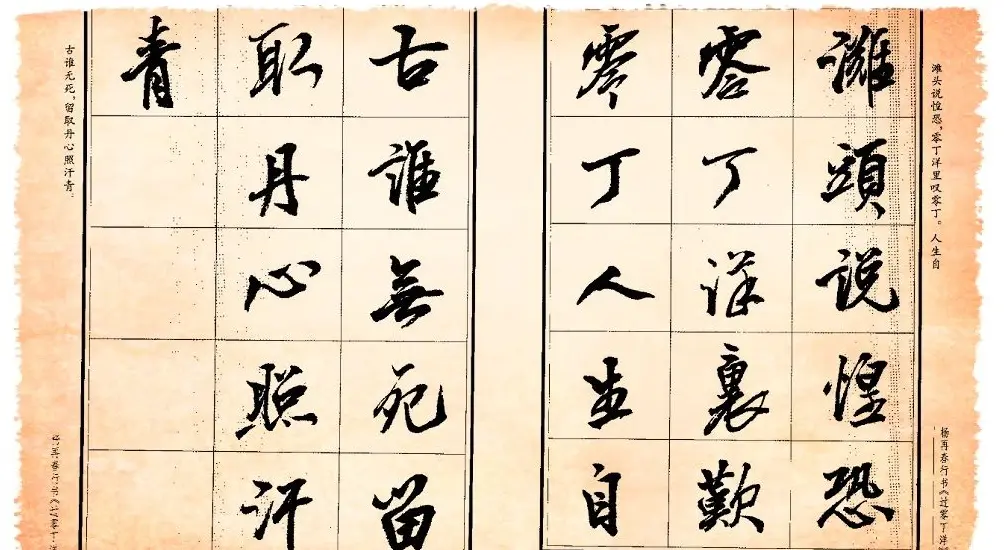 滩头说惶恐，零丁洋里叹零丁。人生自
杨再春行书《过零丁洋
灘頭説惶恐
零丁洋裏歎
零丁人生自
古誰無死留
取丹心照汗
青
古谁无死，留取丹心照汗青。